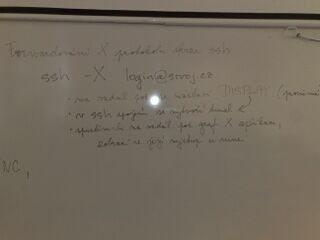 Forwardování X protokolu skrze ssh
ssh -X login@stroj.cz
na vzdál. DISPLAY
v ssh spojení se vytvoří tunel
spustím-li na vzdál. graf. X aplikaci,
zobrazí se její výstup u mne
NC,